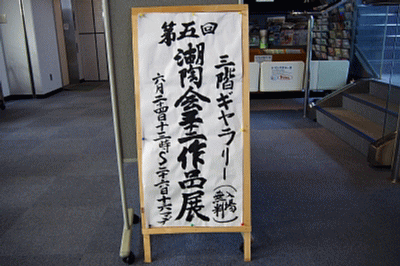 第五回
三階ギャラリー(入場無料)
潮陶会作品展
六月二十四日十三時〜二十六日十六マデ